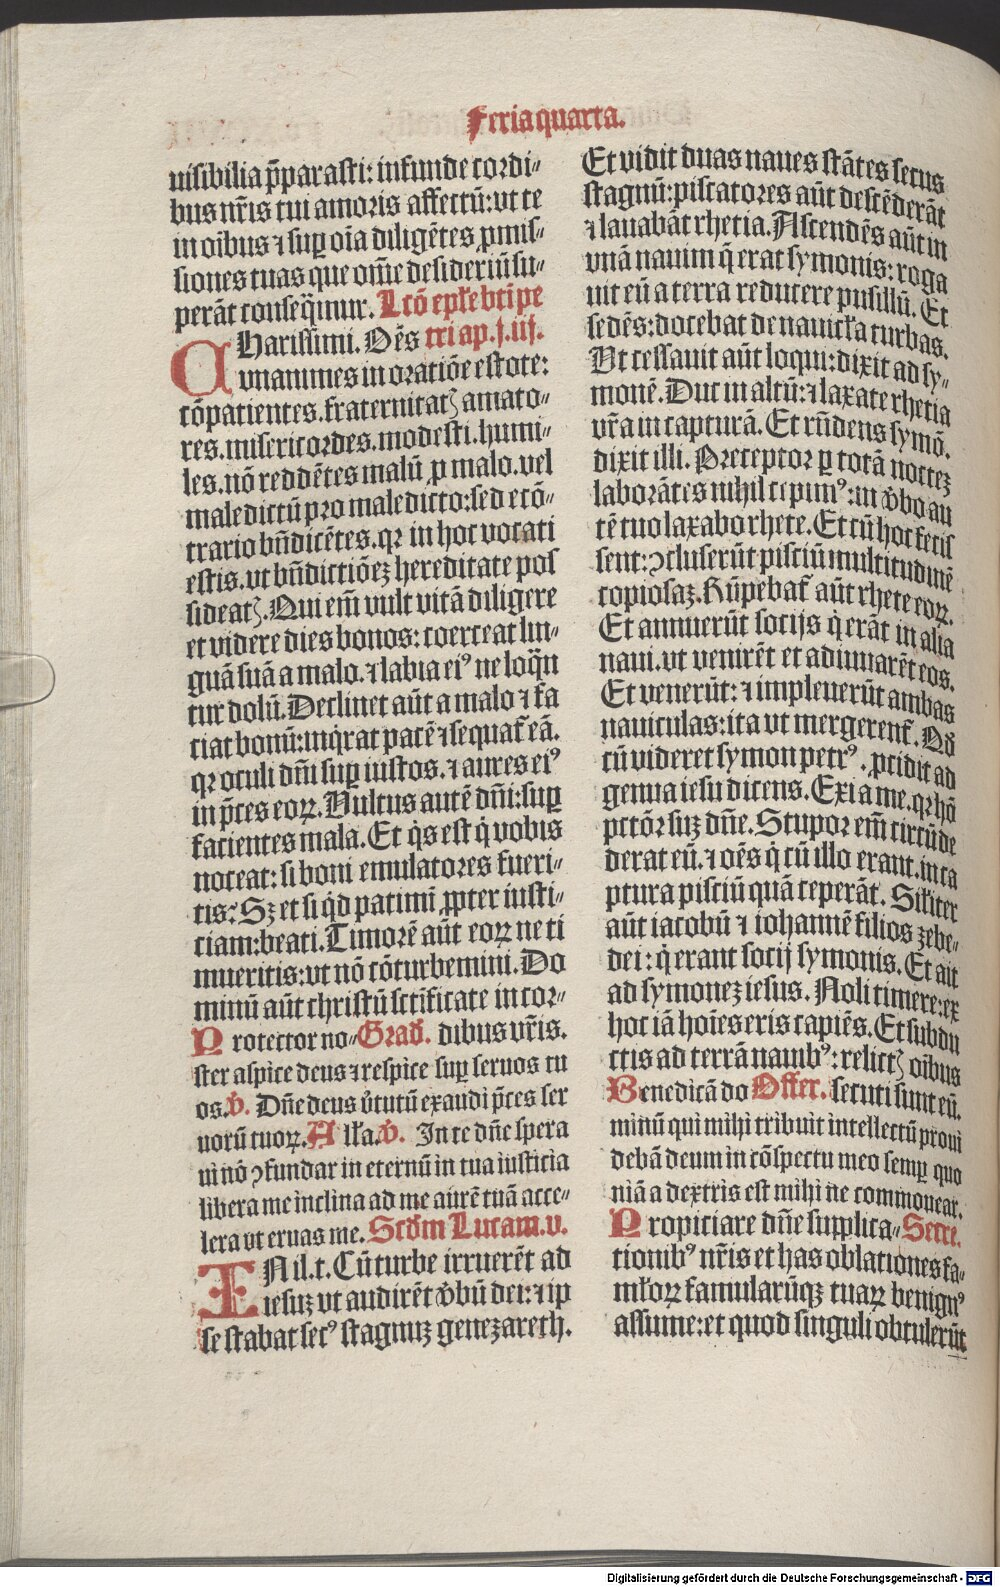 Feria quarta.
uisibilia p̄parasti: infunde cordi⸗
bus nr̄is tui amoris affectū: vt te
in oībus ⁊ suꝑ oīa diligētes ꝓmis⸗
siones tuas que om̄e desideriū su⸗
perāt conseq̄mur. Lcō ep̄le btī pe
CHarissimi. Oēs tri ap. j. iij.
vnanimes in oratiōe estote:
cōpatientes. fraternitatꝭ amato⸗
res. misericordes. modesti. humi⸗
les. nō reddētes malū ꝓ malo. vel
maledictū pro maledicto: sed ecō⸗
trario bn̄dicētes. qꝛ in hoc vocati
estis. vt bn̄dictiōeꝫ hereditate pos
sideatꝭ. Qui em̄ vult vitā diligere
et videre dies bonos: coerceat lin⸗
guā suā a malo. ⁊ labia eiꝰ ne loq̄n
tur dolū. Declinet aūt a malo ⁊ fa
ciat bonū: inq̇rat pacē ⁊ sequat̄ eā.
qꝛ oculi dn̄i suꝑ iustos. ⁊ aures eiꝰ
in p̄ces eoꝝ. Vultus autē dn̄i: suꝑ
facientes mala. Et q̇s est q̇ vobis
noceat: si boni emulatores fueri⸗
tis: Sꝫ et si q̇d patimī ꝓpter iusti⸗
ciam: beati. Timorē aūt eoꝝ ne ti
mueritis: vt nō cōturbemini. Do
minū aūt christū sctīficate in cor⸗
Protector no⸗ Grad̄. dibus vr̄is.
ster aspice deus ⁊ respice suꝑ seruos tu
os. v̄. Dn̄e deus v̓tutū exaudi p̄ces ser
uorū tuoꝝ. Alła. v̄. In te dn̄e spera
ui nō ꝯfundar in eternū in tua iusticia
libera me inclina ad me aurē tuā acce⸗
lera vt eruas me. Scd̄m Lucam. v.
IN il. t. Cū turbe irruerēt ad
iesuꝫ vt audirēt v̓bū dei: ⁊ ip
se stabat secꝰ stagnuꝫ genezareth.
Et vidit duas naues stātes secus
stagnū: piscatores aūt descēderāt
⁊ lauabāt rhetia. Ascendēs aūt in
vnā nauim q̄ erat symonis: roga
uit eū a terra reducere pusillū. Et
sedēs: docebat de nauicła turbas.
Vt cessauit aūt loqui: dixit ad sy⸗
monē. Duc in altū: ⁊ laxate rhetia
vr̄a in capturā. Et rn̄dens symō.
dixit illi. Preceptor ꝑ totā nocteꝫ
laborātes nihil cepimꝰ: in v̓bo au
tē tuo laxabo rhete. Et cū hoc fecis
sent: ꝯcluserūt pisciū multitudinē
copiosaꝫ. Rūpebat̄ aūt rhete eoꝝ.
Et annuerūt socijs q̇ erāt in alia
naui. vt venirēt et adiuuarēt eos.
Et venerūt: ⁊ impleuerūt ambas
nauiculas: ita vt mergerent̄. Qd̄
cū videret symon petrꝰ. ꝓcidit ad
genua iesu dicens. Exi a me. qꝛ hō
pctōr suꝫ dn̄e. Stupor em̄ circūde
derat eū. ⁊ oēs q̇ cū illo erant. in ca
ptura pisciū quā ceperāt. Siłiter
aūt iacobū ⁊ iohannē filios zebe⸗
dei: q̇ erant socij symonis. Et ait
ad symoneꝫ iesus. Noli timere: ex
hoc iā hoīes eris capiēs. Et subdu
ctis ad terrā nauibꝰ: relictꝭ oībus
Benedicā do Offer. secuti sunt eū.
minū qui mihi tribuit intellectū proui
debā deum in cōspectu meo semꝑ quo
niā a dextris est mihi ne commouear.
Propiciare dn̄e supplica⸗ Secre.
tionibꝰ nr̄is et has oblationes fa⸗
młoꝝ famularūqꝫ tuaꝝ benignꝰ
assume: et quod singuli obtulerūt
Digitalisierung gefördert durch die Deutsche Forschungsgemeinschaft - DFG